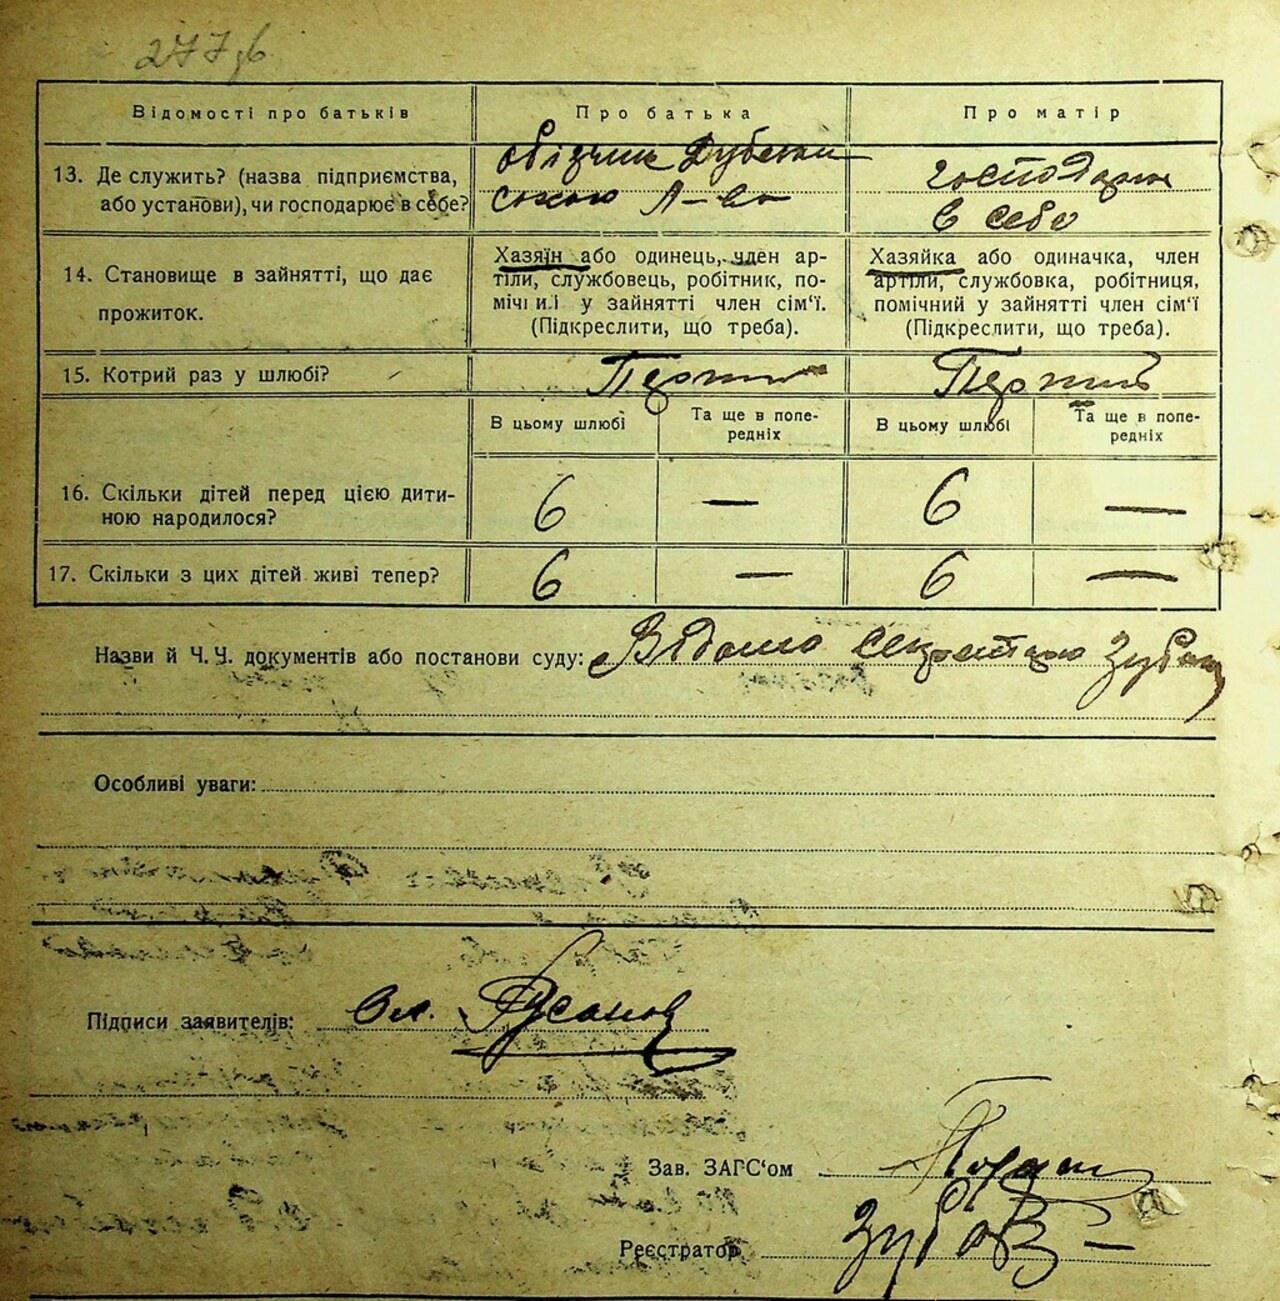 277зб
Відомості про батьків
Про батька
Про матір
13. Де служить? (назва підприємства,
або установи), чи господарює в себе?
господарює
в себе
14. Становище в зайнятті, що дає
прожиток.
Хазяїн або одинець, член ар-
тіли, службовець, робітник, по-
мічний у зайнятті член сім'ї.
(Підкреслити, що треба).
Хазяйка або одиначка, член
артіли, службовка, робітниця,
помічний у зайнятті член сім'ї
(Підкреслити, що треба).
15. Котрий раз у шлюбі?
Перший
Перший
В цьому шлюбі
Та ще в попе-
редніх
В цьому шлюбі
Та ще в попе-
редніх
16. Скільки дітей перед цією дити-
ною народилося?
6
—
6
—
17. Скільки з цих дітей живі тепер?
6
—
6
—
Назви й Ч. Ч. документів або постанови суду: Відомо секретарю
Особливі уваги:
Підписи заявителів: Вл. Русанов
Зав. ЗАГС'ом
Реєстратор Зубов